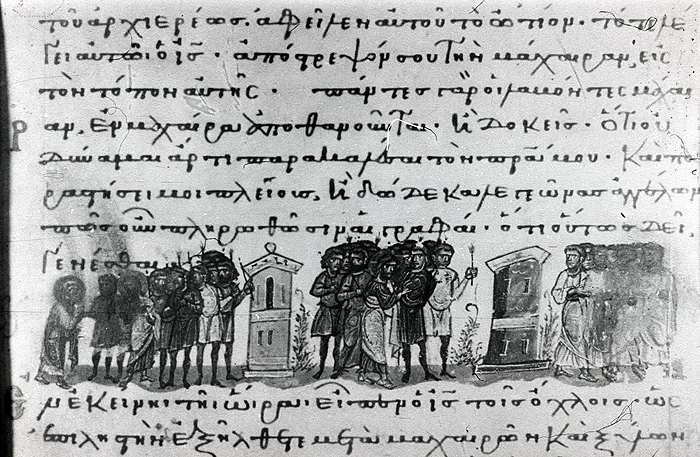 τοῦ ἀρχιερέως. ἀφεῖλεν αὐτοῦ τὸ ὠτίον· τότε λέ
γει αὐτῶ ὁ ις· ἀπόστρεψόν σου τὴν μάχαιραν, εἰς
τὸν τόπον αὐτῆς· πάντες γὰρ οἱ λαβόντες μάχαι
ραν, ἐν μαχαίρα ἀποθανοῦνται· ἢ δοκεῖς· ὅτι οὐ
δύναμαι ἄρτι παρακαλέσαι τὸν πρα μου· καὶ πα
ραστήσει μοι πλείους, ἢ δώδεκα λεγεῶνας ἀγγέλων
πῶς οὖν πληρωθῶσιν αἱ γραφαί· ὅτι οὕτως δεῖ
γενέσθαι
ἐν ἐκείνη τῆ ὥρα εἶπεν ὁ ις τοῖς ὄχλοις, ὡς
ἐπὶ ληστὴν ἐξήλθετε μετὰ μαχαιρῶν καὶ ξύλων